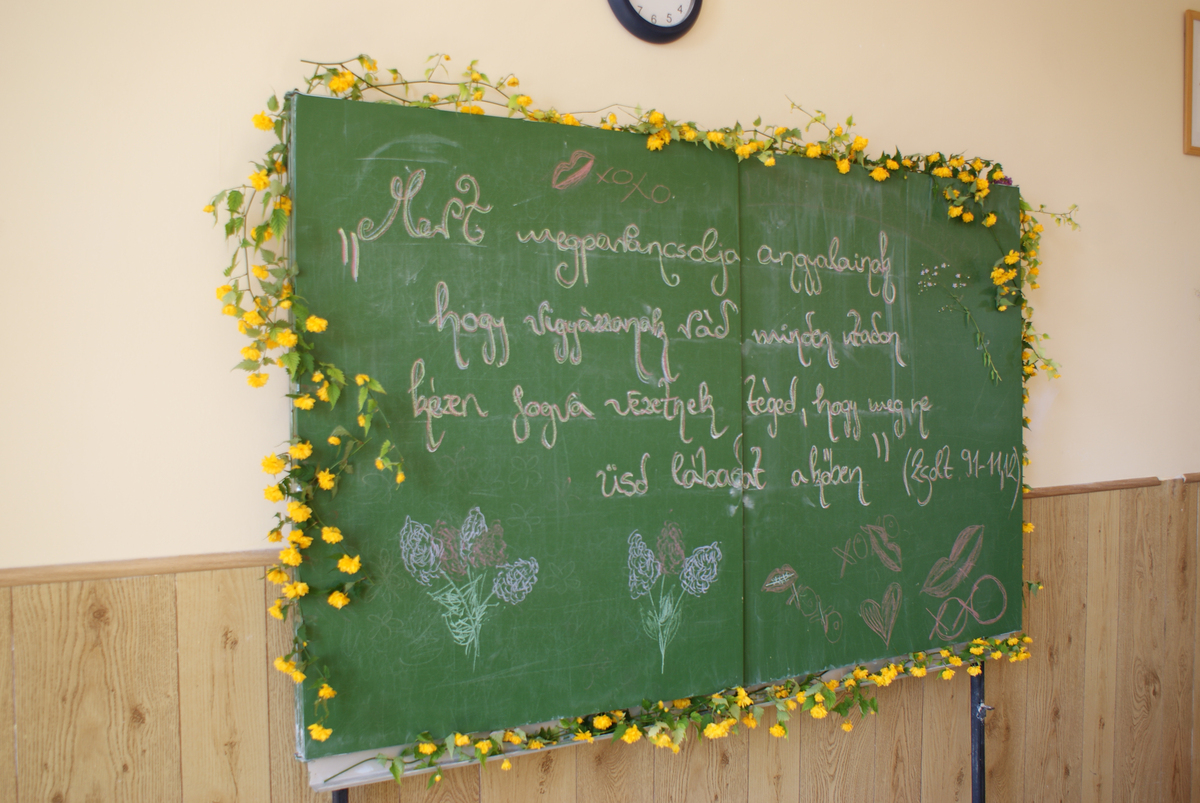 7 6 5 4
xoxo.
"Mert megparancsolja angyalainak
hogy vigyázzanak rád minden utadon
kézen fogva vezetnek téged, hogy meg ne
üsd lábadat a kőben" (Zsolt. 91-11,12)
xo
xoxo
xoxo